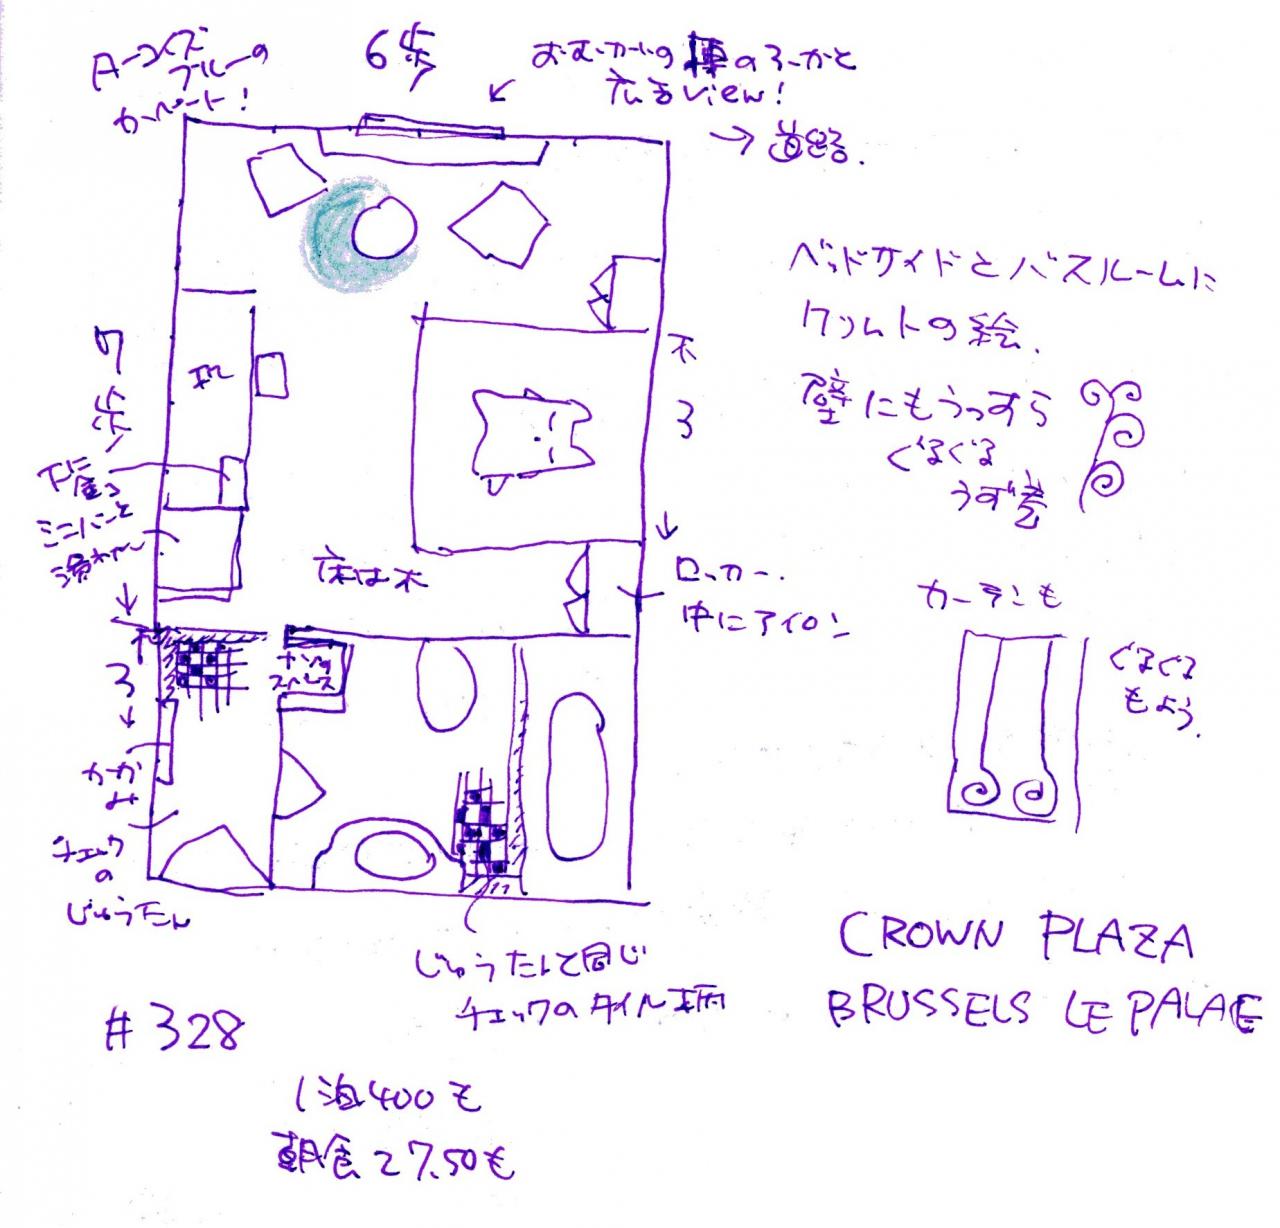 ターコイズ
ブルーの
カーペット!
6歩
おむかいの
のろーかと
広るview!
→道路.
ベッドサイドとバスルームに
クリムトの絵.
壁にもうっすら
ぐるぐる
うず巻
7歩
机
木
3
下に金こ
ミニバーと
床は木
ロッカー.
中にアイロン
3
かが
み
チェック
の
じゅうたん
カーテンも
ぐるぐる
もよう.
じゅうたんと同じ
チェックのタイル柄
CROWN PLAZA
BRUSSELS LE PALACE
#328
1泊400€
朝食27.50€